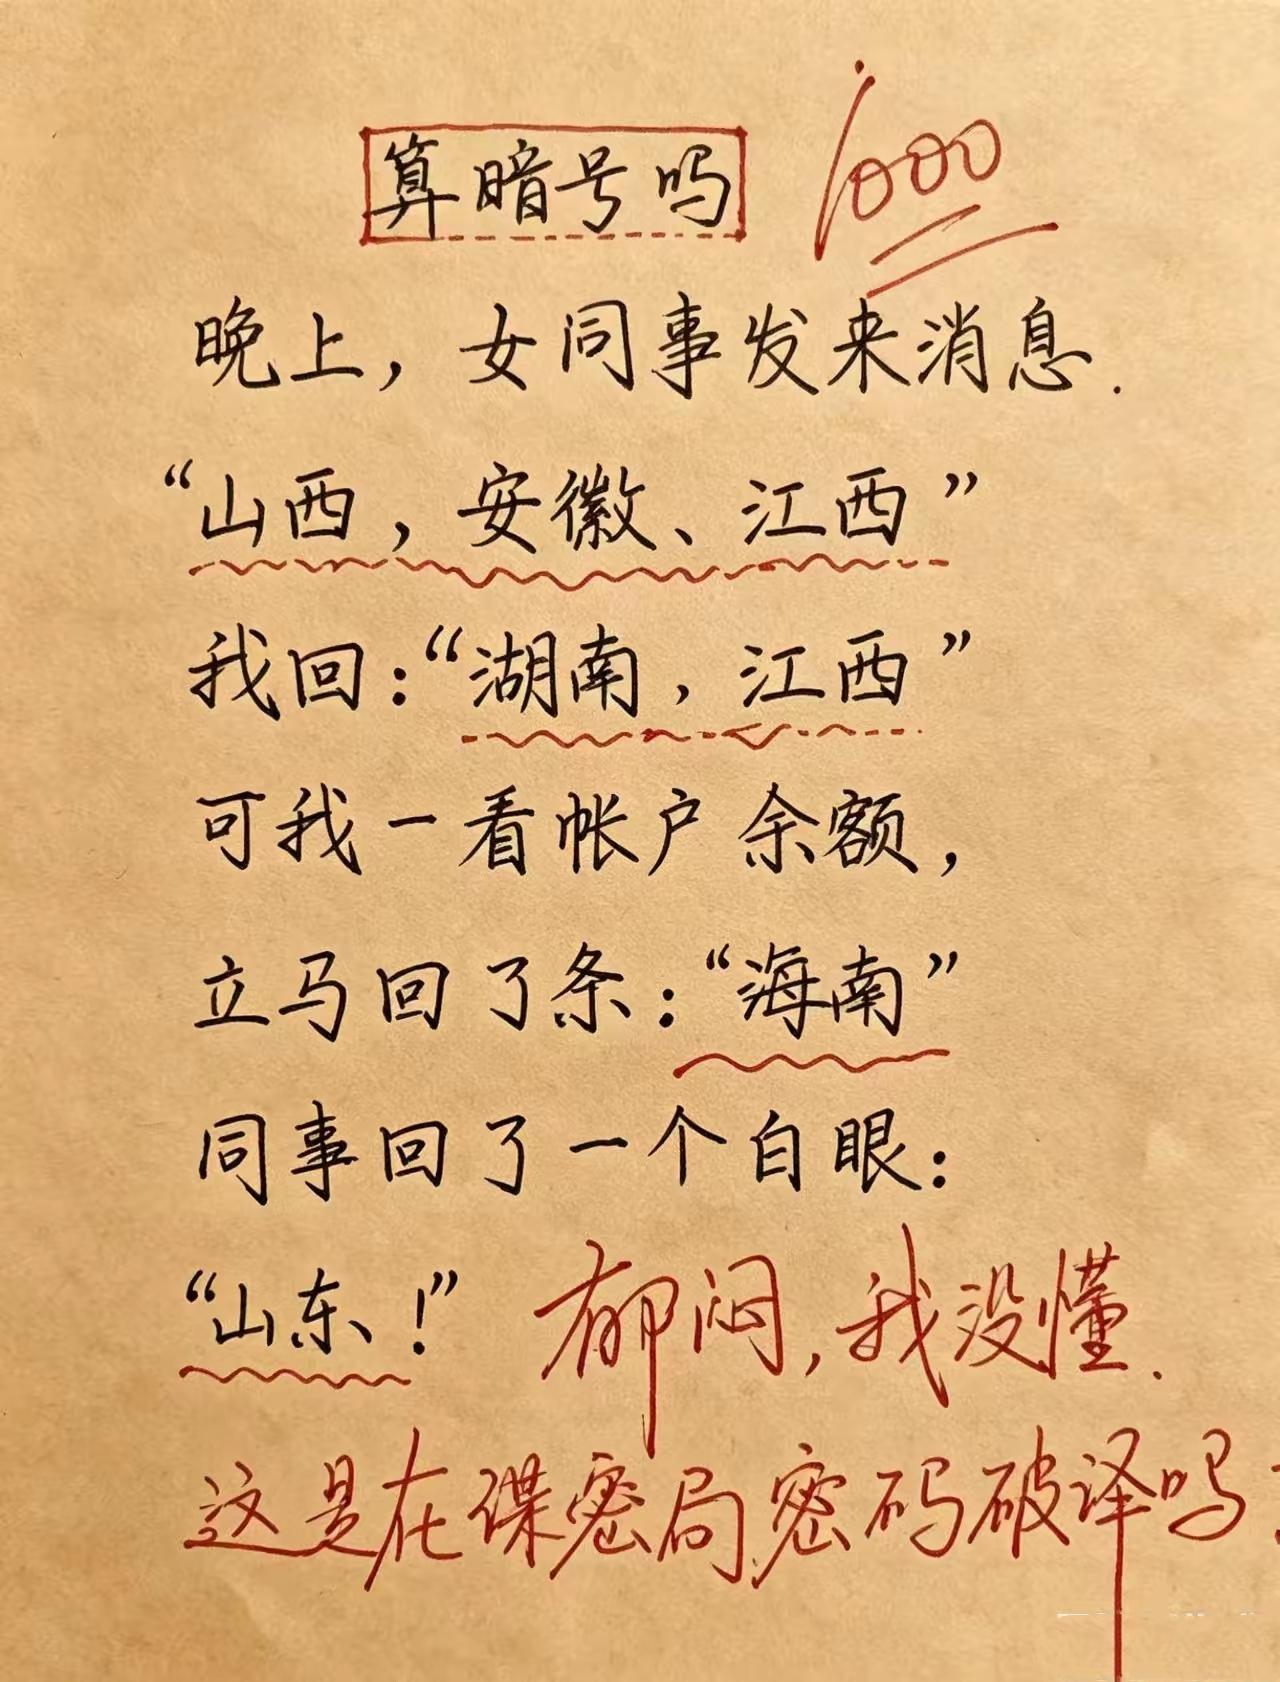 算暗号吗 1000
晚上，女同事发来消息.
“山西，安徽、江西”
我回：“湖南，江西”
可我一看帐户余额，
立马回了条：“海南”
同事回了一个白眼：
“山东！” 郁闷，我没懂.
这是在谍密局密码破译吗